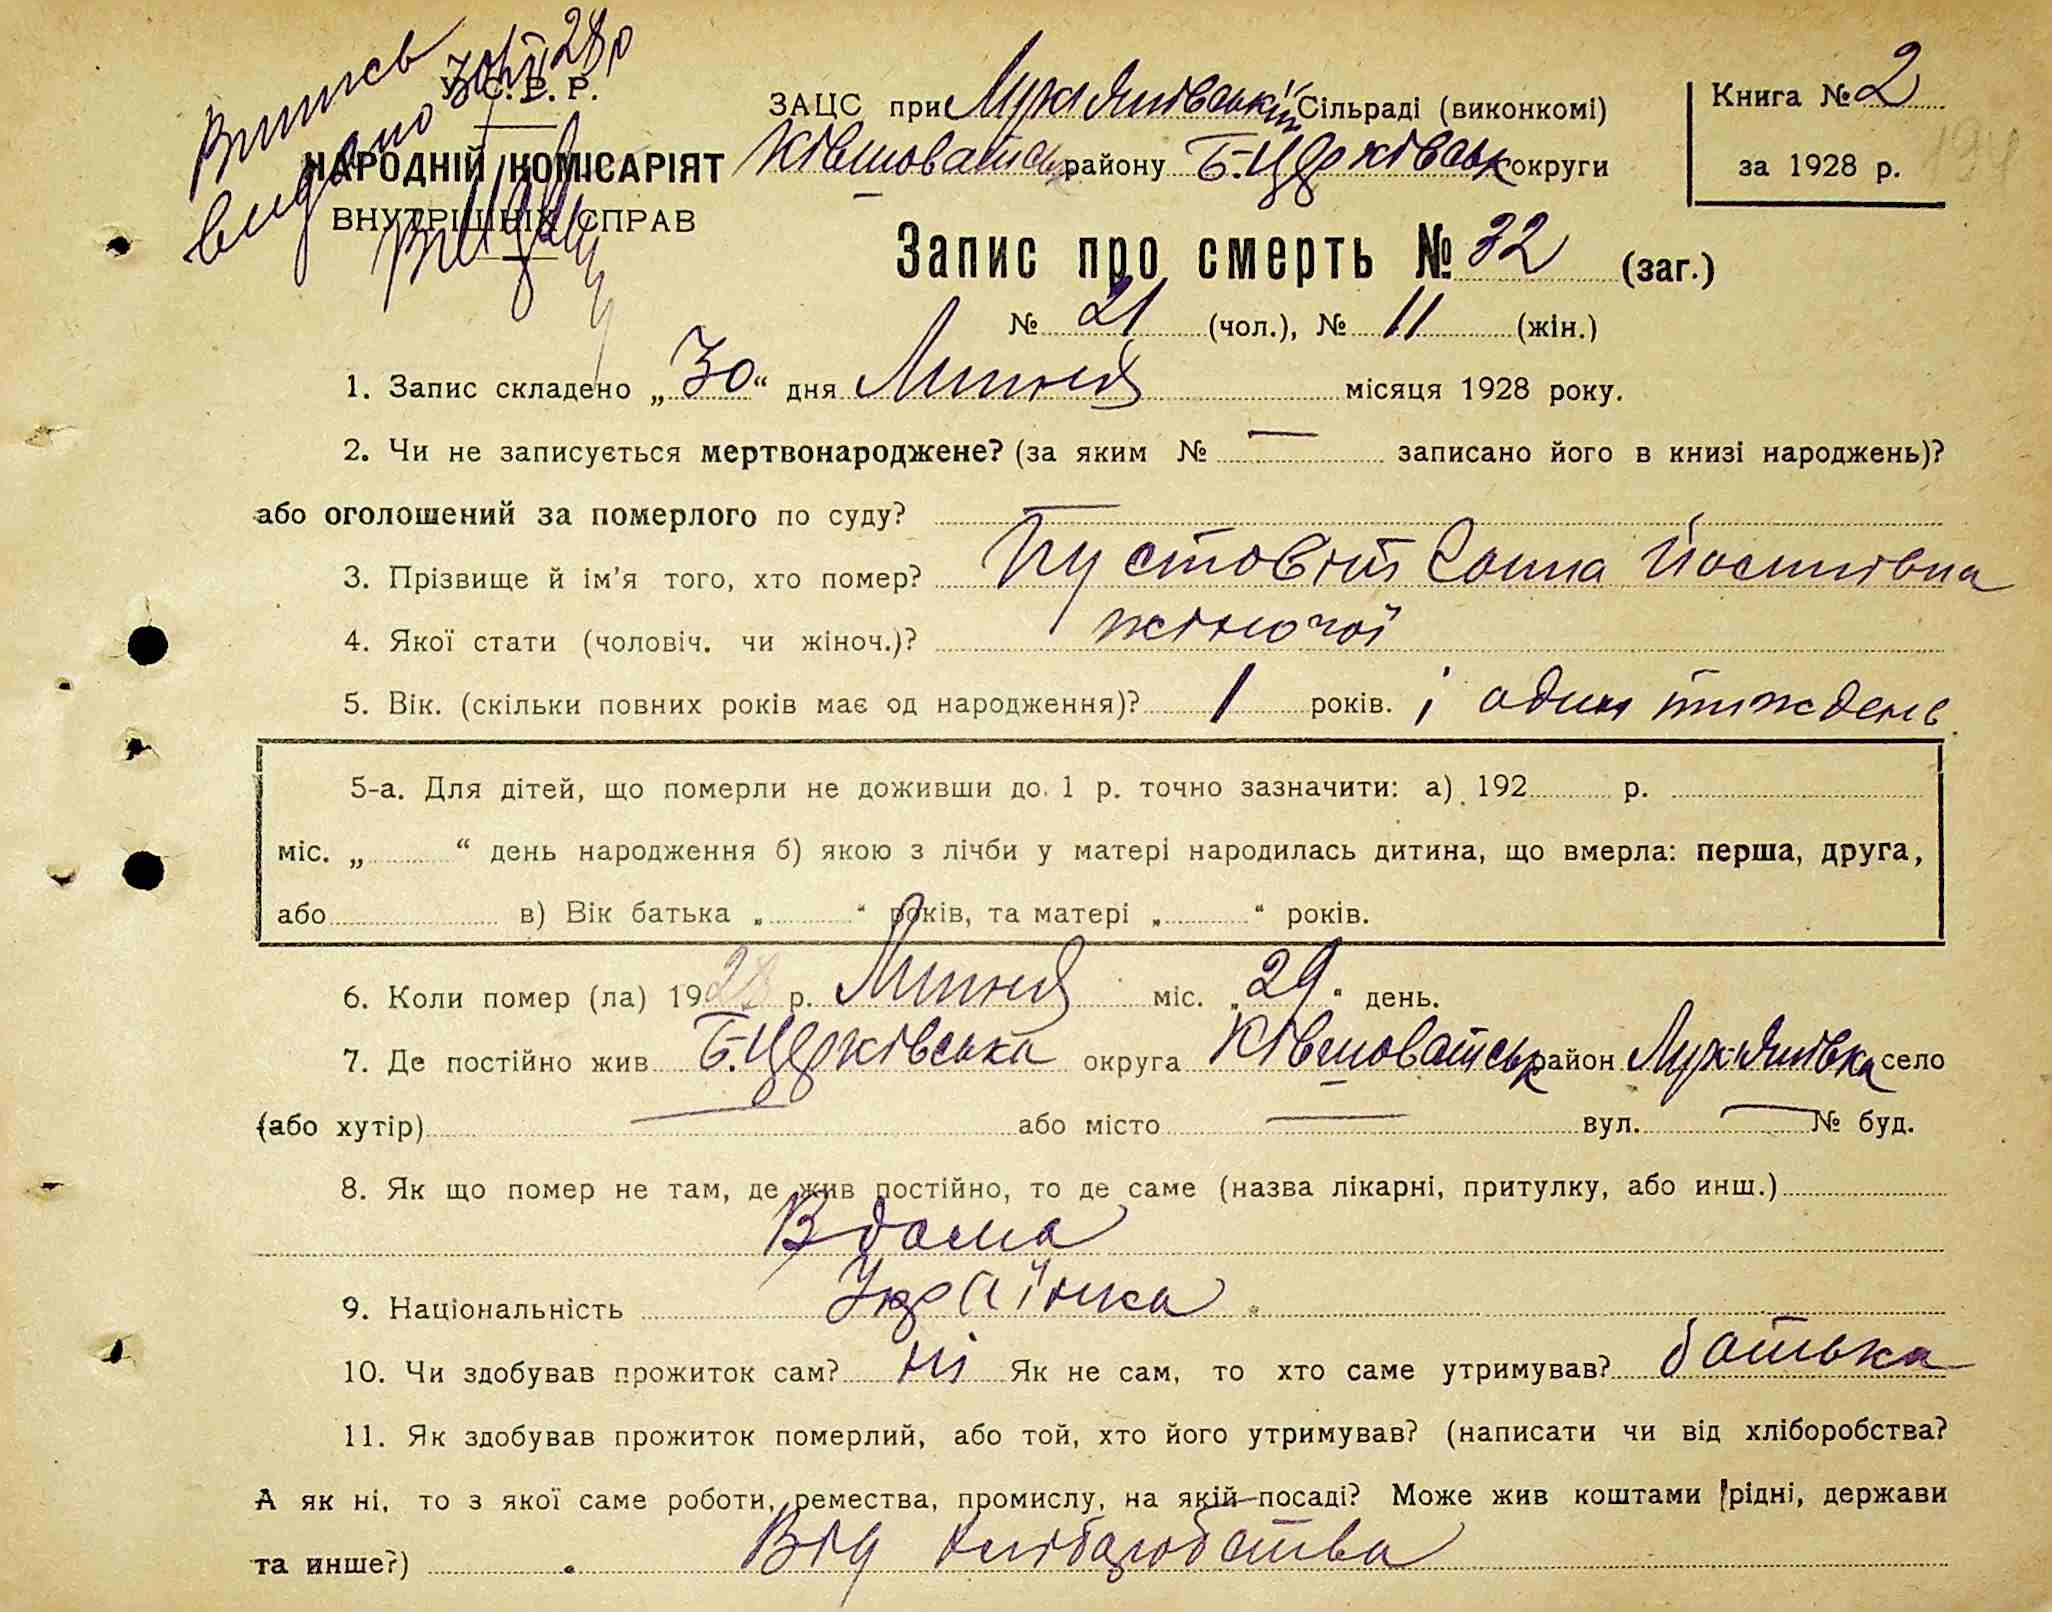 Випись
видано 30/VII 28 р
У. С. Р. Р.
НАРОДНІЙ КОМІСАРІЯТ
ВНУТРІШНІХ СПРАВ
ЗАЦС при Лук'янівській Сільраді (виконкомі)
Ківшоватськ району Б-Церківськ округи
Книга № 2
за 1928 р.
Запис про смерть № 32 (заг.)
№ 21 (чол.), № 11 (жін.)
1. Запис складено „30“ дня Липня місяця 1928 року.
2. Чи не записується мертвонароджене? (за яким № — записано його в книзі народжень)?
або оголошений за померлого по суду? —
3. Прізвище й ім'я того, хто помер? Пустовіт Ганна Йосипівна
4. Якої стати (чоловіч. чи жіноч.)? жіночої
5. Вік. (скільки повних років має од народження)? 1 років. і один тиждень
5-а. Для дітей, що померли не доживши до 1 р. точно зазначити: а) 192 р.
міс. „ “ день народження б) якою з лічби у матері народилась дитина, що вмерла: перша, друга,
або в) Вік батька „ “ років, та матері „ “ років.
6. Коли помер (ла) 1928 р. Липня міс. „29“ день.
7. Де постійно жив Б-Церківська округа Ківшоватськ район Лук'янівка село
(або хутір) — або місто — вул. — № буд.
8. Як що помер не там, де жив постійно, то де саме (назва лікарні, притулку, або инш.)
Вдома
9. Національність Українка
10. Чи здобував прожиток сам? ні Як не сам, то хто саме утримував? батька
11. Як здобував прожиток померлий, або той, хто його утримував? (написати чи від хліборобства?
А як ні, то з якої саме роботи, ремества, промислу, на якій посаді? Може жив коштами рідні, держави
та инше?) Від хліборобства